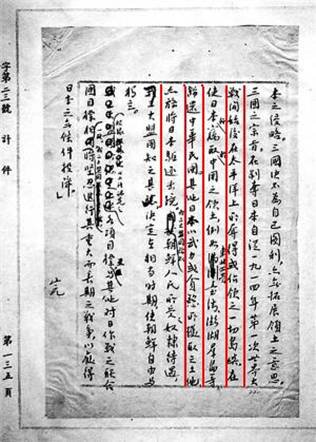 本之侵略。三國決不為自己圖利,亦無拓展領土之意思。
三國之宗旨,在剝奪日本自從一九一四年第一次世界大
戰開始後在太平洋上所奪得或佔領之一切島嶼,在
使日本竊取中國之領土,例如滿洲,台灣,澎湖羣島等
歸還中華民國,其他日本以武力或貪慾所攫取之土地
亦務將日本驅逐出境。朝鮮人民所受奴隸待遇
三大盟國知之甚 決定在相當時期使朝鮮自由與
獨立。
各項目標與其他對日作戰之聯合
國目標相同,堅忍進行其重大而長期之戰爭,以獲得
日本之無條件投降。」
完
字第二三號 計 件 第一三五頁